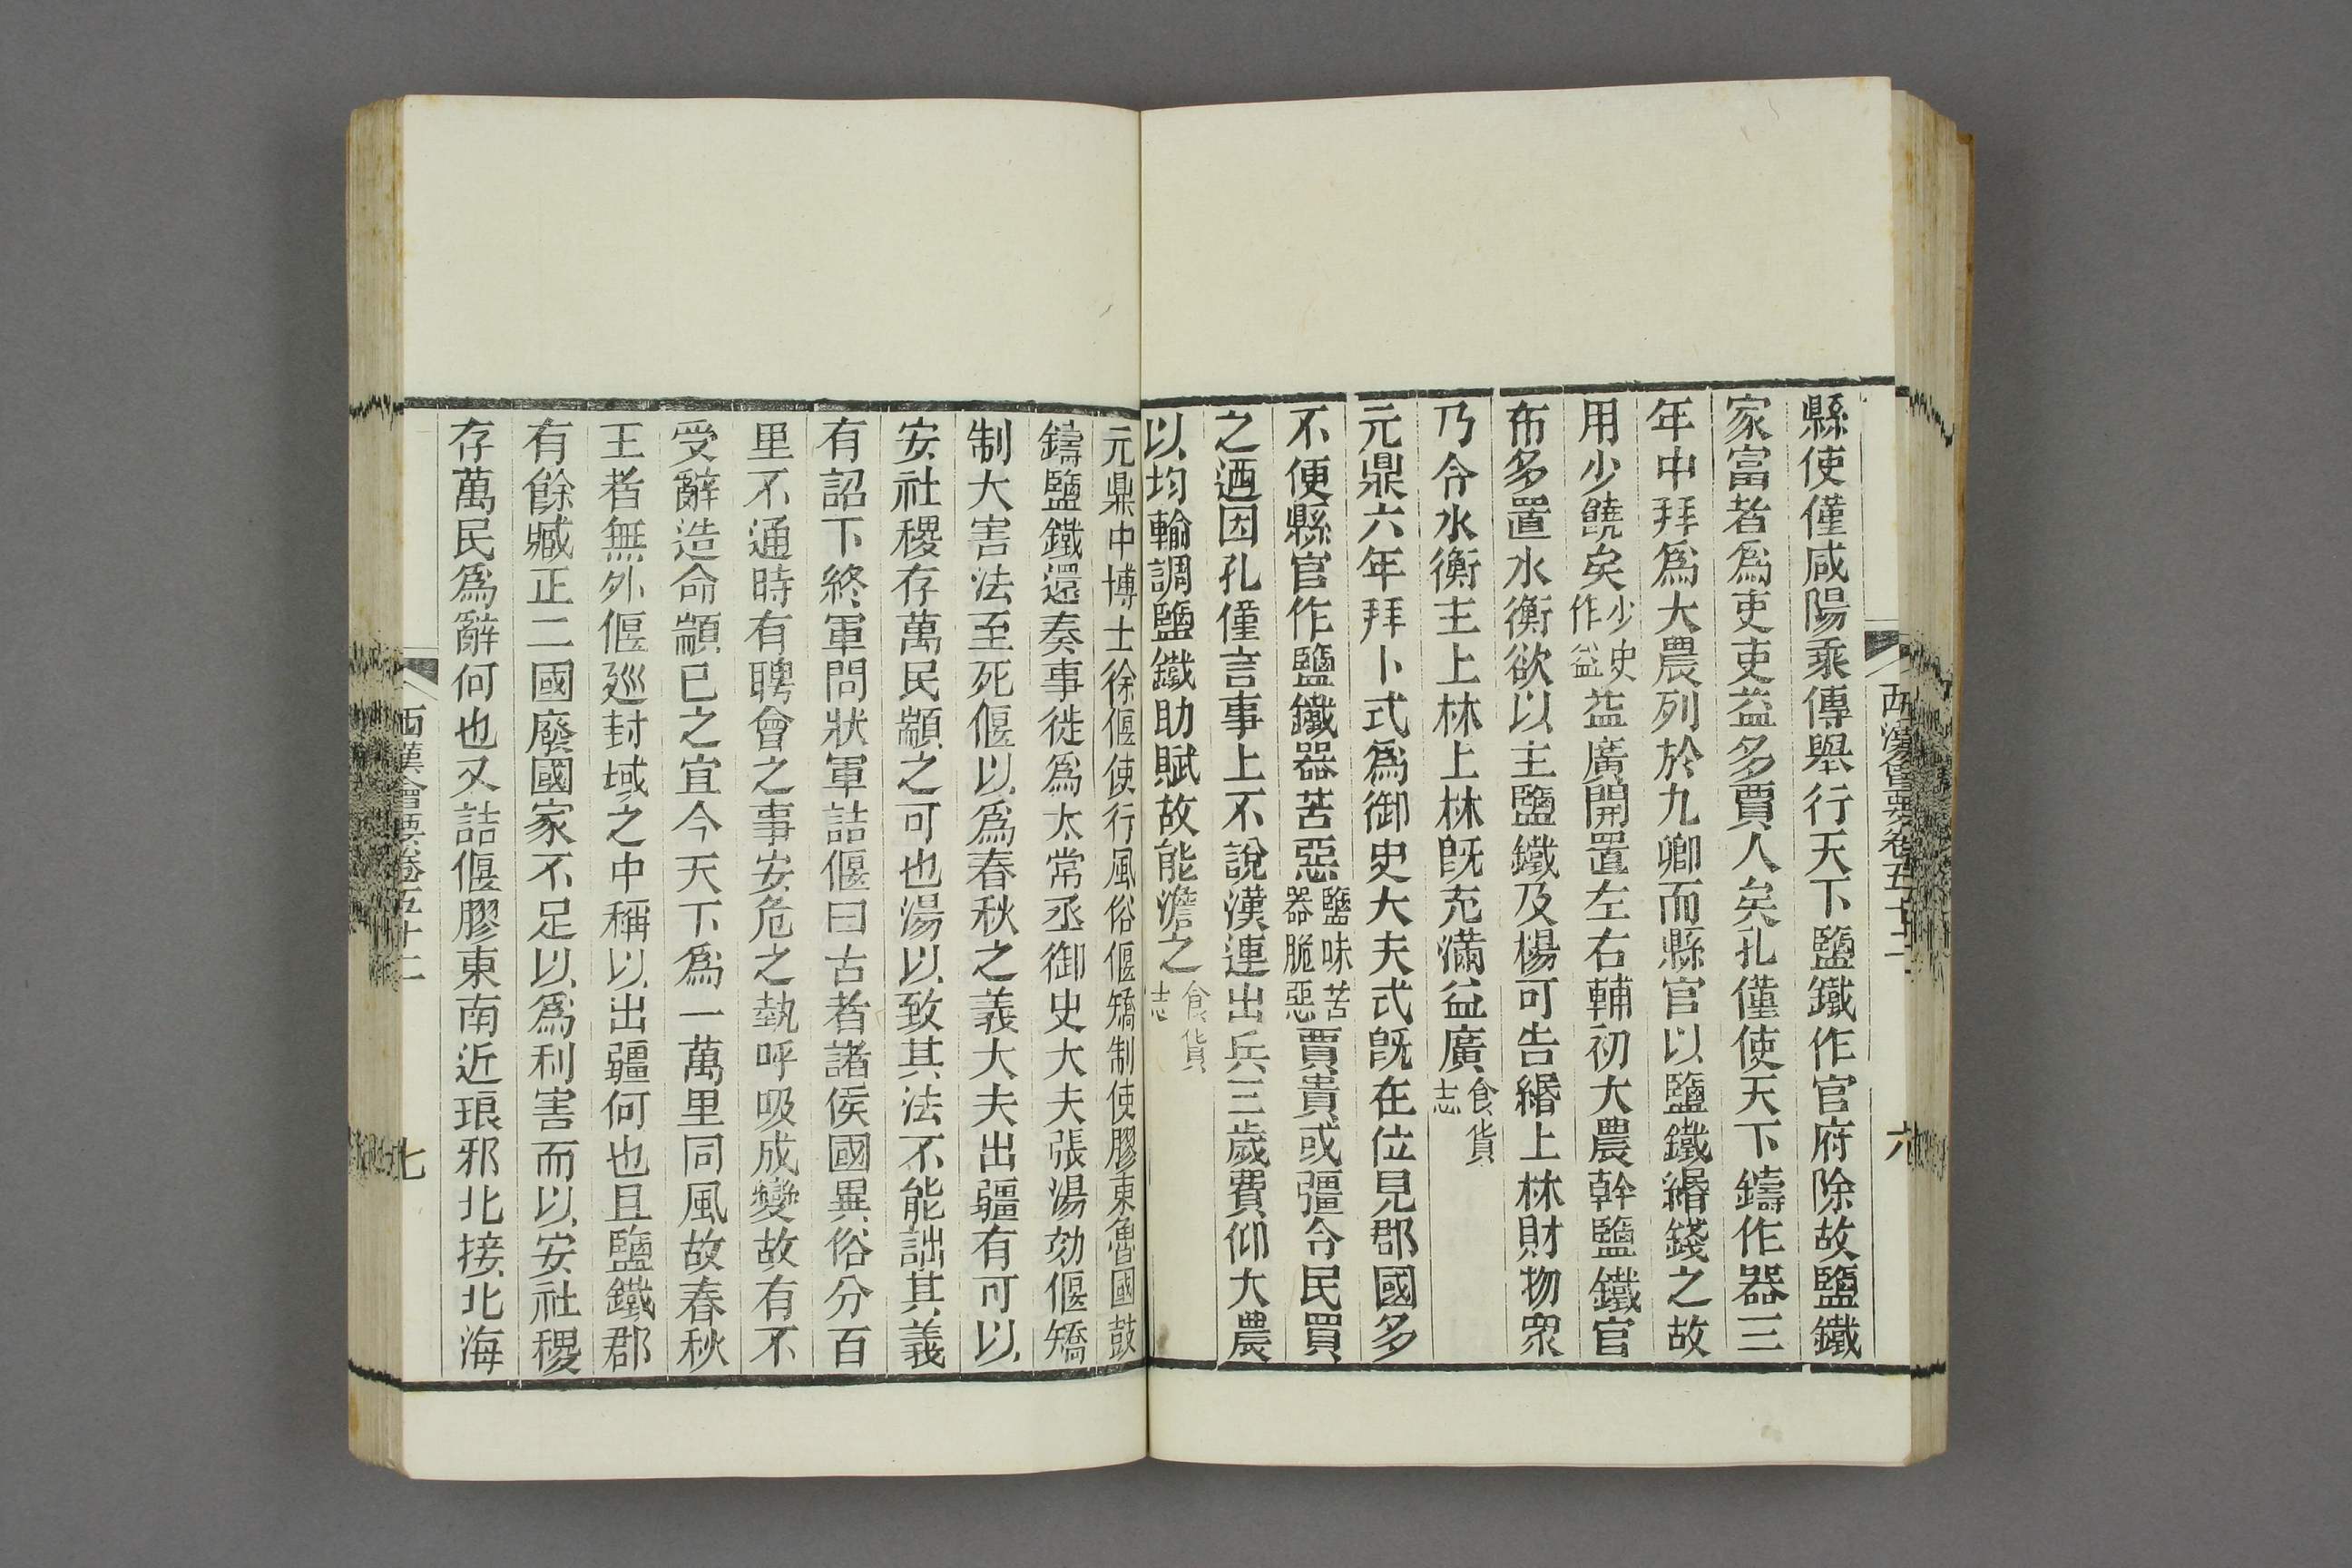 縣使僅咸陽乘傳舉行天下鹽鐵作官府除故鹽鐵
家富者爲吏吏益多賈人矣孔僅使天下鑄作器三
年中拜爲大農列於九卿而縣官以鹽鐵緡錢之故
用少饒矣少史作益益廣開置左右輔初大農幹鹽鐵官
布多置水衡欲以主鹽鐵及楊可告緡上林財物眾
乃令水衡主上林上林旣充滿益廣食貨志
元鼎六年拜卜式爲御史大夫式旣在位見郡國多
不便縣官作鹽鐵器苦惡鹽味苦器脆惡賈貴或彊令民買
之迺因孔僅言事上不說漢連出兵三歲費仰大農
以均輸調鹽鐵助賦故能澹之食貨志
西漢會要卷五十二
六
元鼎中博士徐偃使行風俗偃矯制使膠東魯國鼓
鑄鹽鐵還奏事徙爲太常丞御史大夫張湯劾偃矯
制大害法至死偃以爲春秋之義大夫出疆有可以
安社稷存萬民顓之可也湯以致其法不能詘其義
有詔下終軍問狀軍詰偃曰古者諸侯國異俗分百
里不通時有聘會之事安危之埶呼吸成變故有不
受辭造命顓已之宜今天下爲一萬里同風故春秋
王者無外偃廵封域之中稱以出疆何也且鹽鐵郡
有餘臧正二國廢國家不足以爲利害而以安社稷
存萬民爲辭何也又詰偃膠東南近琅邪北接北海
西漢會要卷五十二
七